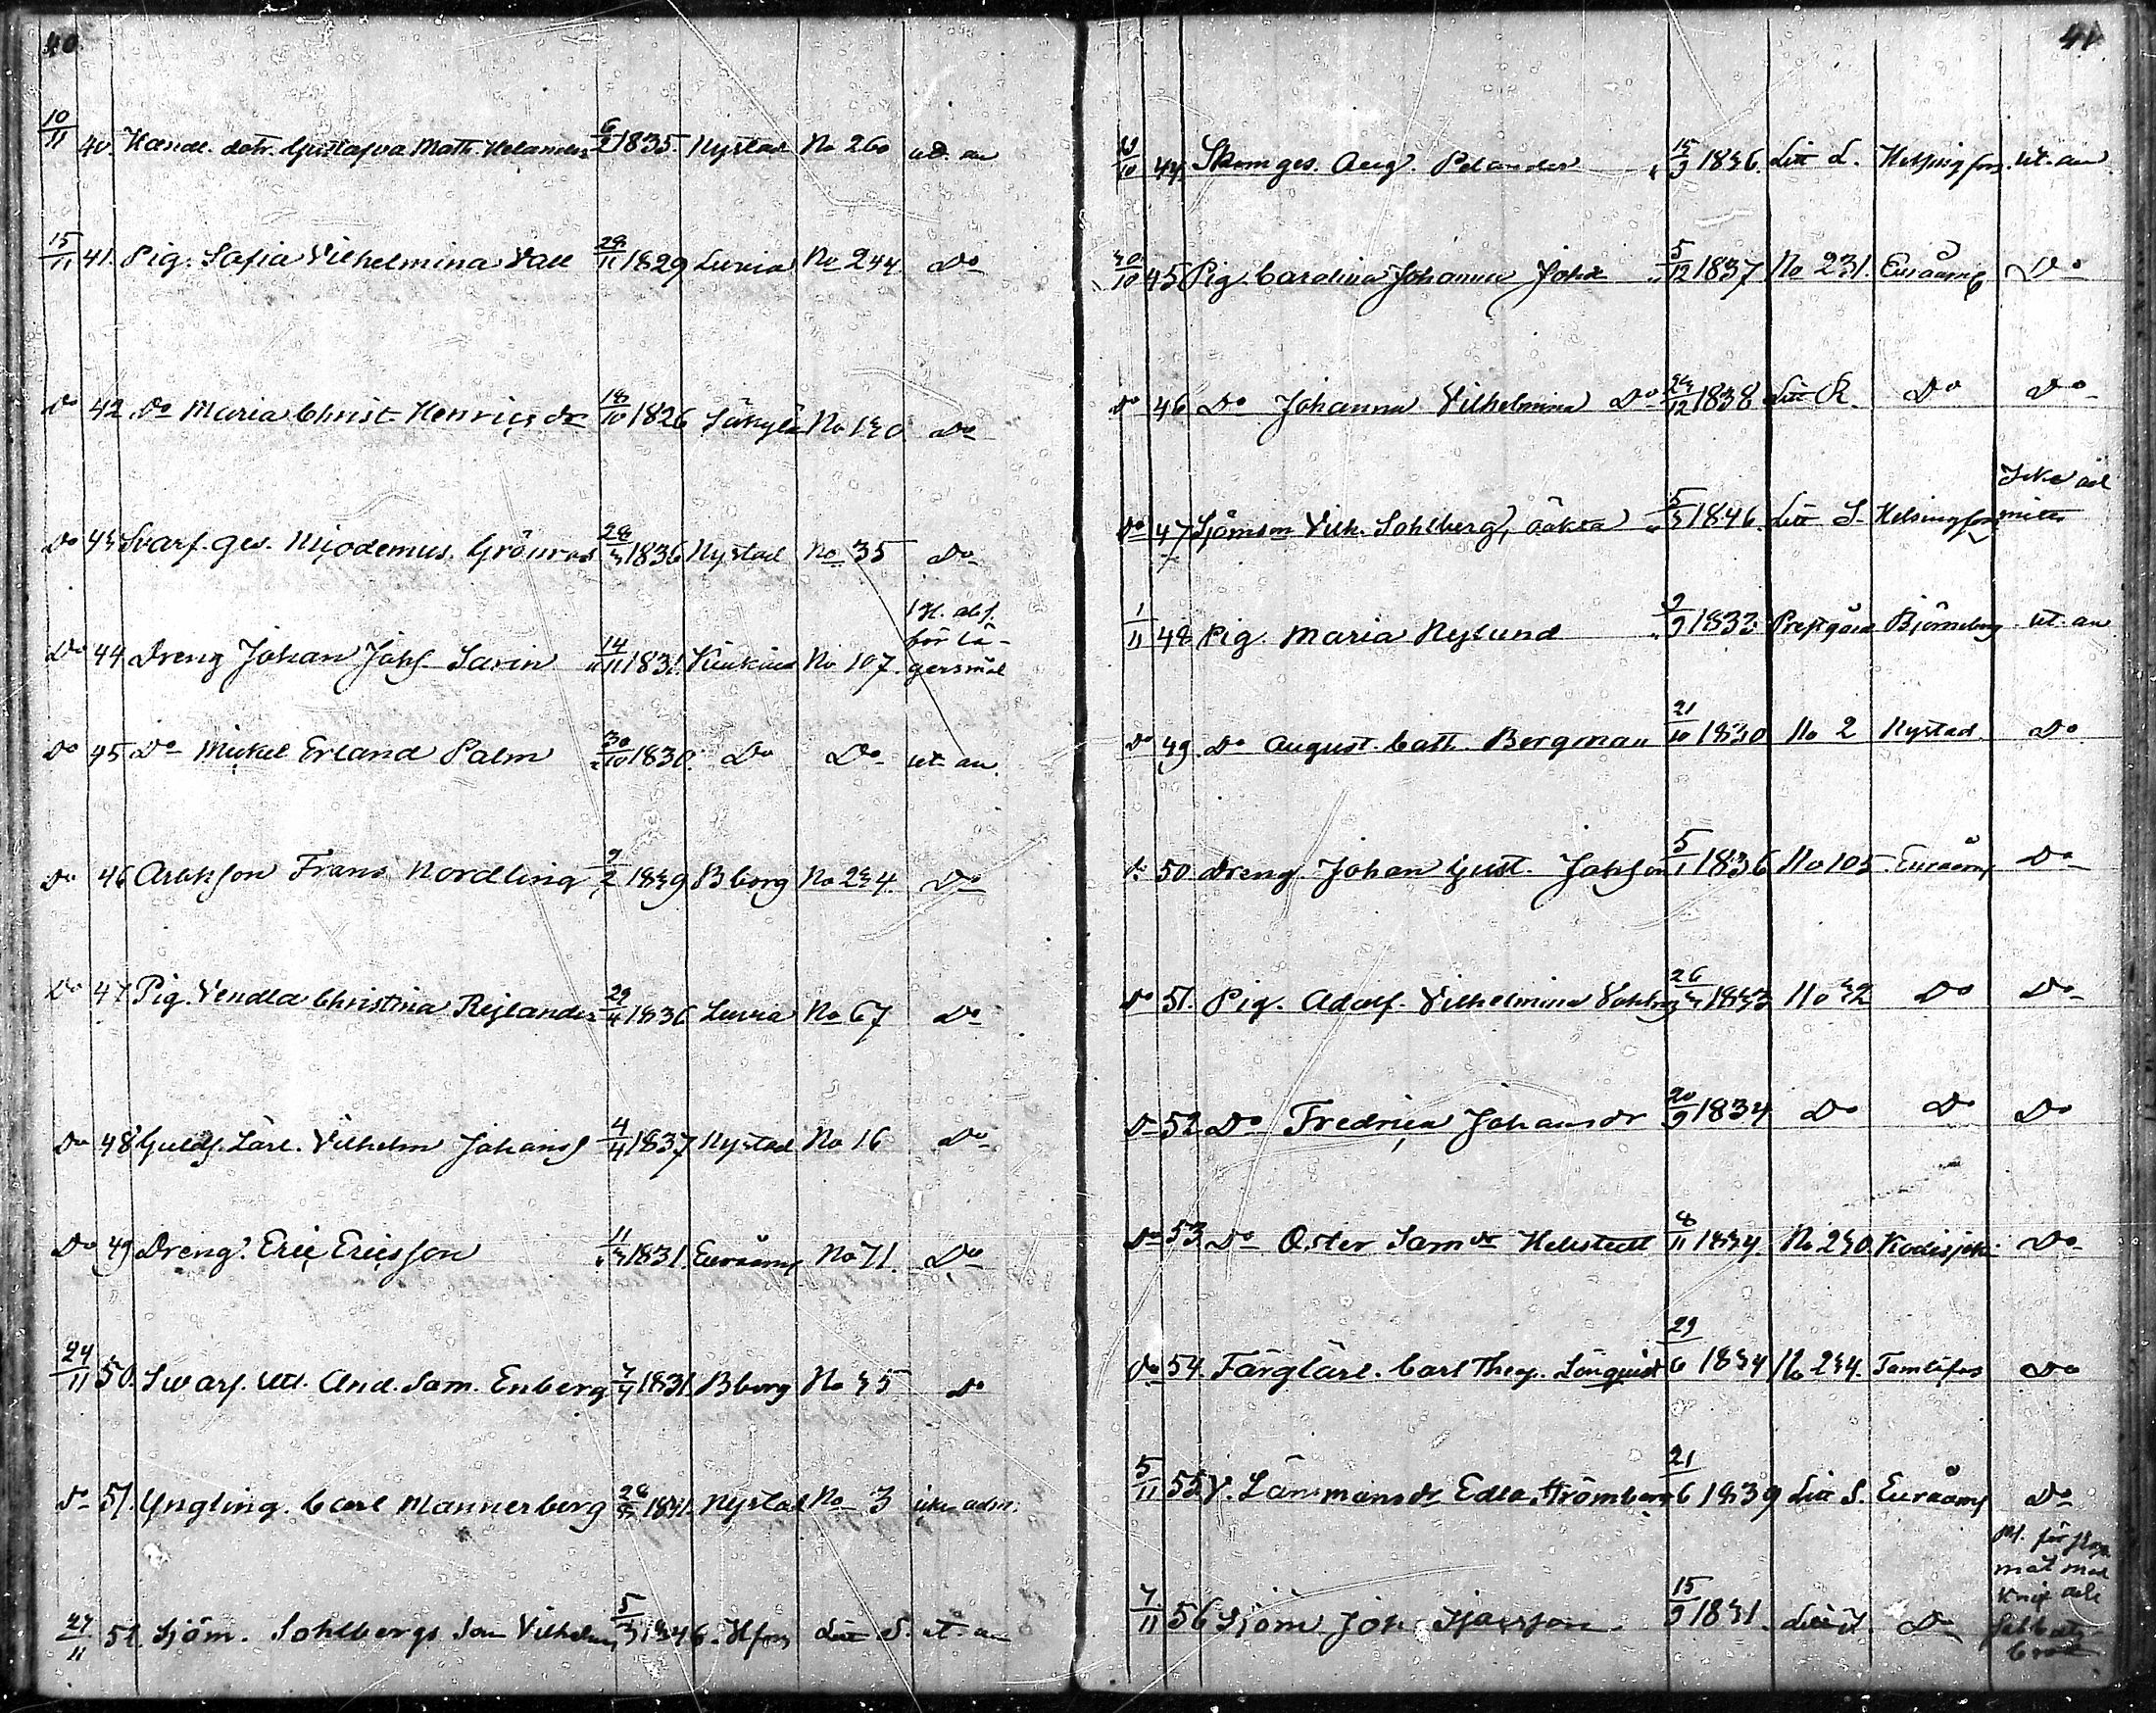 40
10/11 40. Handl. dotr. Gustafva Math. Helander 6/2 1835. Nystad No 260 ut. an
15/11 41. Pig. Sofia Vilhelmina Vall 29/11 1829 Luvia No 244 Do
Do 42. Do Maria Christ. Henricsdr 18/10 1826 Säkylä No 130 Do
Do 43 Svarf. ges. Nicodemus Grönroos 28/3 1836 Nystad No 35 Do
1 Kl. abs.
för lä-
Do 44 Dreng Johan Johs. Savin 14/11 1831. Kiukais No 107. gersmål
Do 45 Do Mickel Erland Palm 30/10 1830. Do Do ut. an.
Do 46 Frans Nordling 9/2 1839 Bborg No 234. Do
Do 47 Pig. Vendla Christina Rejlander 29/4 1836 Luvia No 67 Do
Do 48 Guldf. Lärl. Vilhelm Johanss 4/4 1837 Nystad No 16 Do
Do 49 Dreng. Eric Ericsson 11/3 1831. Euraåmi No 71. Do
24/11 50. Svarf. And. Sam. Enberg 7/4 1831. Bborg No 35 Do
Do 51. Yngling. Carl Mannerberg 1831. Nystad No 3 icke adm.
27/11 52. Sjöm. Sohlbergs Son Vilhelm 5/3 1846. Hfors Litt S. ut an
41
10 44. Skom ges. Aug. Pelander 15/9 1836. Litt L. Helsingfors. ut. an
30/10 45 Pig. Carolina Johanna Johdr 5/12 1837 No 231. Euraåmi Do
Do 46 Do Johanna Vilhelmina Do 12 1838 Litt R. Do Do
Icke
Do 47 Sjömson Vilh. Sohlberg, oäkta 5/3 1846. Litt S. Helsingfors
1/11 48 Pig. Maria Nylund 9/9 1833 Prestgård Björneborg ut. an
Do 49. Do August. Cath. Bergman 21/10 1830 No 2 Nystad. Do
Do 50. Dreng. Johan Gust. Johsson 5/1 1836 No 105. Euraåmi Do
Do 51. Pig. Adolf. Vilhelmina 26/3 1833 No 32 Do Do
Do 52 Do Fredrica Johansdr 20/9 1834 Do Do Do
Do 53 Do Ester Samdr Hellstedt 8/11 1834 No 230 Kodisjoki Do
Do 54. Färglärl. Carl Theo. Lönquist 29/6 1834 No 234. Tamlafors Do
5/11 55 V. Länsmansdr Edla Strömberg 21/6 1839 Litt S. Euraåmi Do
7/11 56 Sjöm Joh. Isacsson. 15/9 1831. Litt Do
Pl. för
mål med
Knif och
Sabbats
brott